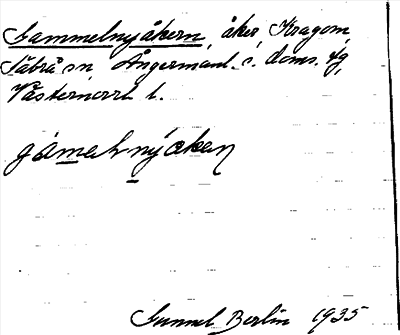 Gammelnyåkern, åker, Kragom,
Säbrå sn, Ångermanl. s. doms. fg,
Västernorrl l.
gámelnýcken
Gunnel Berlin 1935